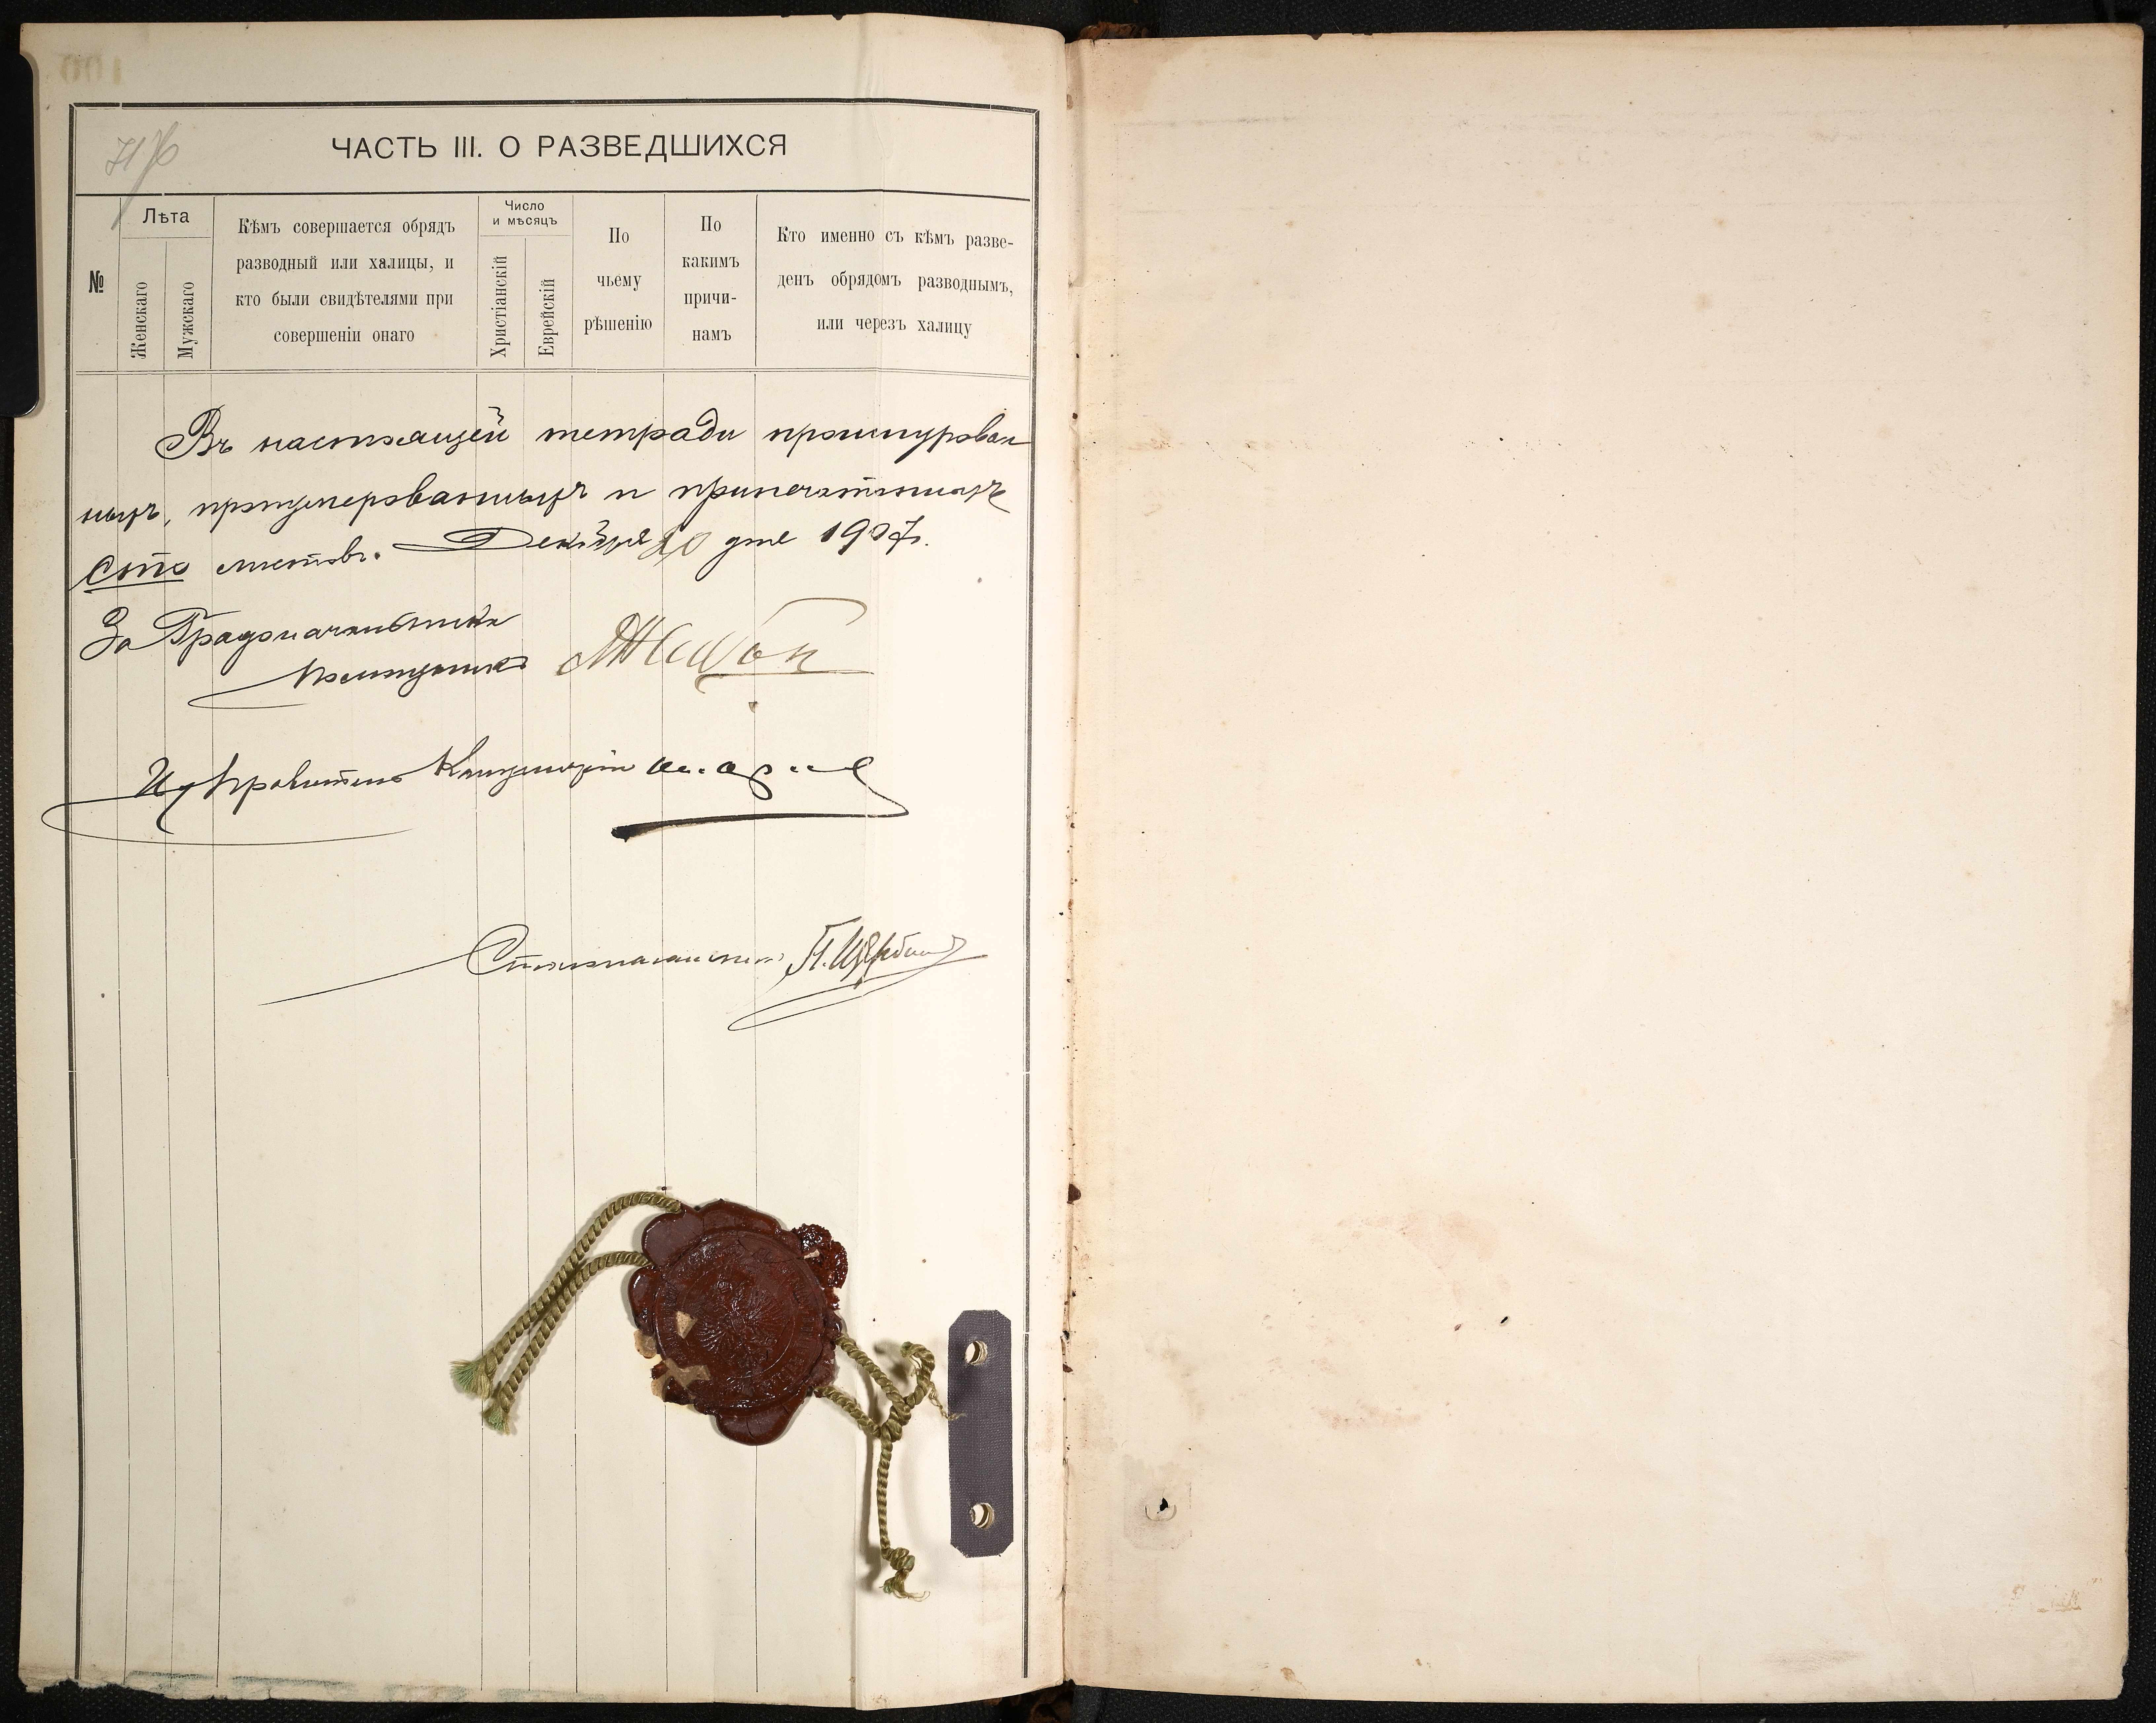 ЧАСТЬ III. О РАЗВЕДШИХСЯ
№
Лѣта
Женскаго
Мужскаго
Кѣмъ совершается обрядъ
разводный или халицы, и
кто были свидѣтелями при
совершеніи онаго
Число
и мѣсяцъ
Христіанскій
Еврейскій
По
чьему
рѣшенію
По
какимъ
причи-
намъ
Кто именно съ кѣмъ разве-
денъ обрядомъ разводнымъ,
или черезъ халицу
Въ настоящей тетради прошнурован
ныхъ, пронумерованныхъ и припечатанныхъ
сто листовъ. Декабря 20 дня 1907г.
За Градоначальника
Помощникъ
Правитель Канцеляріи
Столоначальникъ